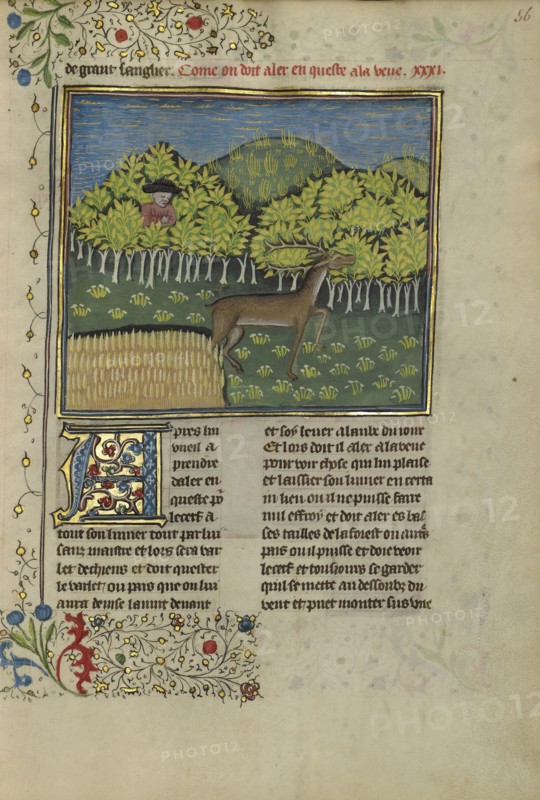 56
de grant sanglier. Come on doit aler en queste a la veue. xxxi.
Apres lui
vueil a
prendre
daler en
queste po
le cerf a
tout son limier tout par lui
sanz maistre et lors sera var
let de chiens et doit quester
le varlet ou pais que on lui
aura devise la nuit devant
et soy lever a laube du iour
Et lors doit il aler a la veue
pour veoir chose qui lui plaise
et laissier son limier en certa
in lieu ou il ne puisse faire
nul effroy et doit aler es bas
ses tailles de la forest ou autres
pais ou il puisse et doie veoir
le cerf et tousiours se garder
quil se mette au dessoubz du
vent et puet monter sus une
PHOTO12